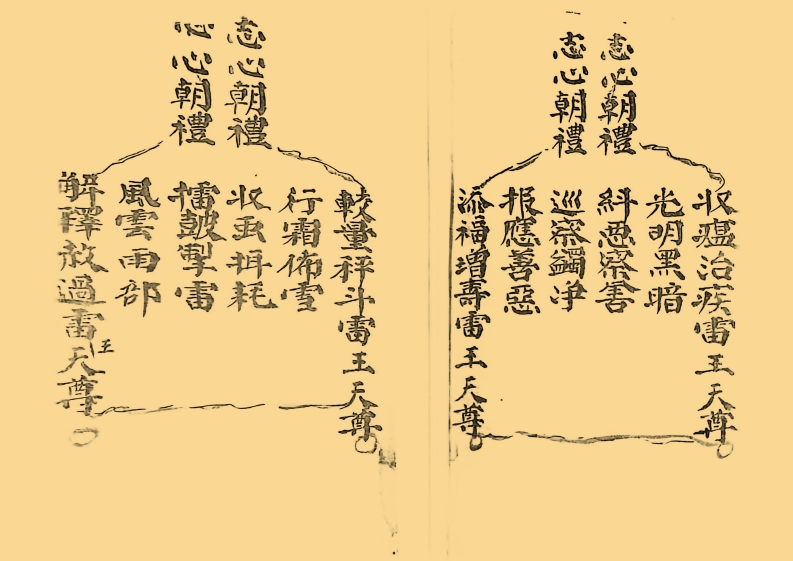 志心朝禮
志心朝禮
収瘟治疾雷王天尊
光明黑暗
糾惡察善
巡察蠲净
报應善惡
添福增壽雷王天尊
志心朝禮
志心朝禮
較量秤斗雷王天尊
行霜佈雪
収虫耗
擂鼓掣雷
風雲雨部
解釋赦過雷王天尊